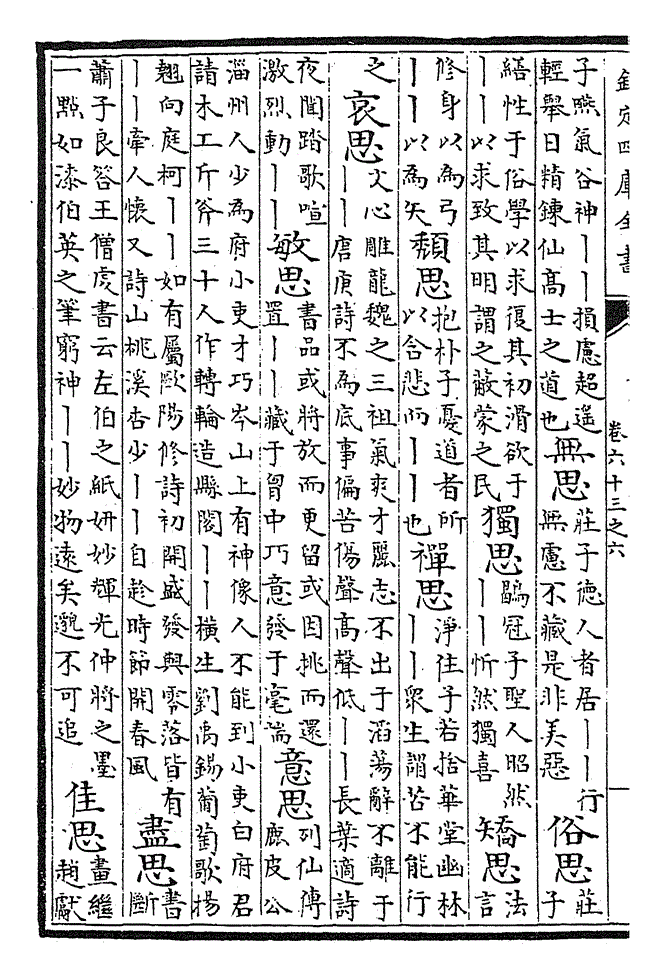 欽定四庫全書 卷六十三之六
子嚥氣谷神丨丨損慮超遙輕舉日精鍊仙高士之道也無思莊子德人者居丨丨行無慮不藏是非美惡俗思莊子
繕性于俗學以求復其初滑欲于丨丨以求致其明謂之蔽蒙之民獨思鶡冠子聖人昭然丨丨忻然獨喜矯思法言
修身以為弓丨丨以為矢頽思抱朴子憂道者所以含悲而丨丨也禪思淨住子若捨華堂幽林丨丨衆生謂苦不能行
之哀思文心雕龍魏之三祖氣爽才麗志不出于滔蕩辭不離于丨丨唐庚詩不為底事偏苦傷聲高聲低丨丨長葉適詩
夜聞踏歌喧激烈動丨丨敏思書品或將放而更留或因挑而還置丨丨藏于胷中巧意發于毫端意思列仙傳鹿皮公
淄州人少為府小吏才巧岑山上有神像人不能到小吏白府君請木工斤斧三十人作轉輪造縣閣丨丨橫生劉禹錫葡萄歌揚
翹向庭柯丨丨如有屬歐陽修詩初開盛發與零落皆有丨丨牽人懷又詩山桃溪杏少丨丨自趁時節開春風盡思書斷
蕭子良答王僧虔書云左伯之紙妍妙輝光仲將之墨一點如漆伯英之筆窮神丨丨妙物遠矣邈不可追佳思畫繼趙獻